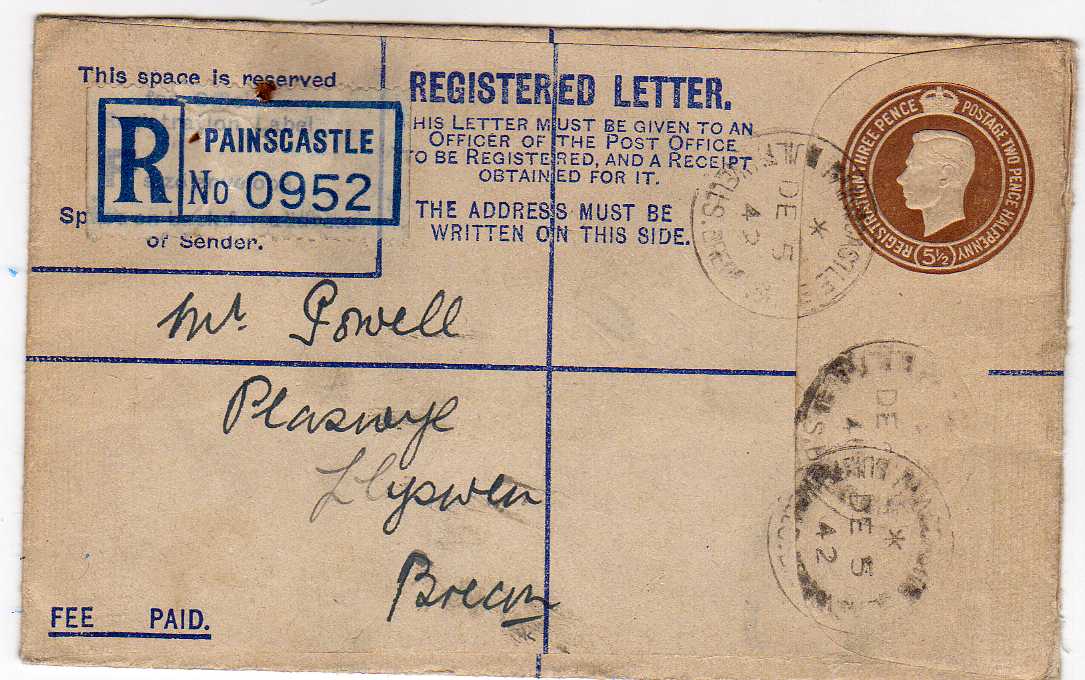 This space is reserved
R
PAINSCASTLE
No 0952
Sp
of Sender.
REGISTERED LETTER.
HIS LETTER MUST BE GIVEN TO AN
OFFICER OF THE POST OFFICE
TO BE REGISTERED, AND A RECEIPT
OBTAINED FOR IT.
THE ADDRESS MUST BE
WRITTEN ON THIS SIDE.
REGISTRATION THREE PENCE POSTAGE TWO PENCE HALFPENNY
5½
DE 5
42
Mr. Powell
Plaswye
Llyswen
Brecon
DE
4
DE 5
42
FEE PAID.